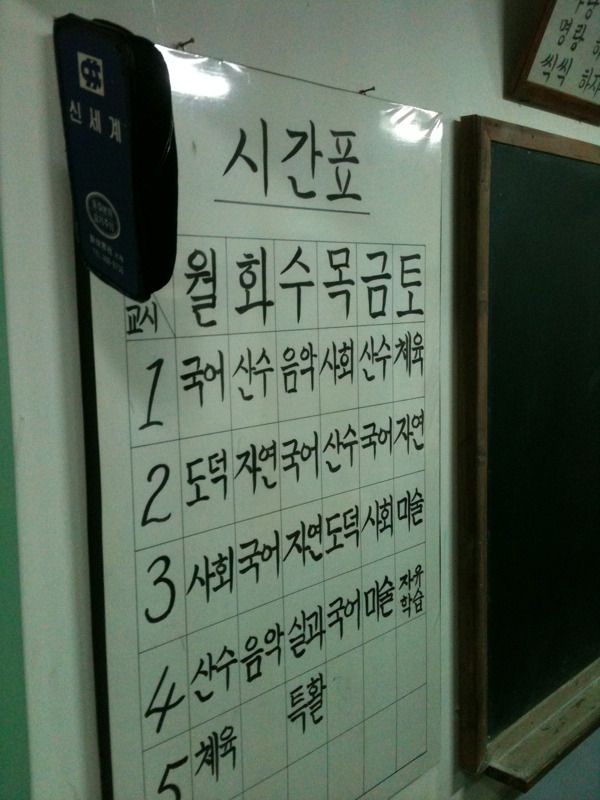 신세계
시간표
교시 월 화 수 목 금 토
1 국어 산수 음악 사회 산수 체육
2 도덕 자연 국어 산수 국어 자연
3 사회 국어 자연 도덕 사회 미술
4 산수 음악 실과 국어 미술 자유학습
5 체육 특활
명랑 하
씩씩 하자